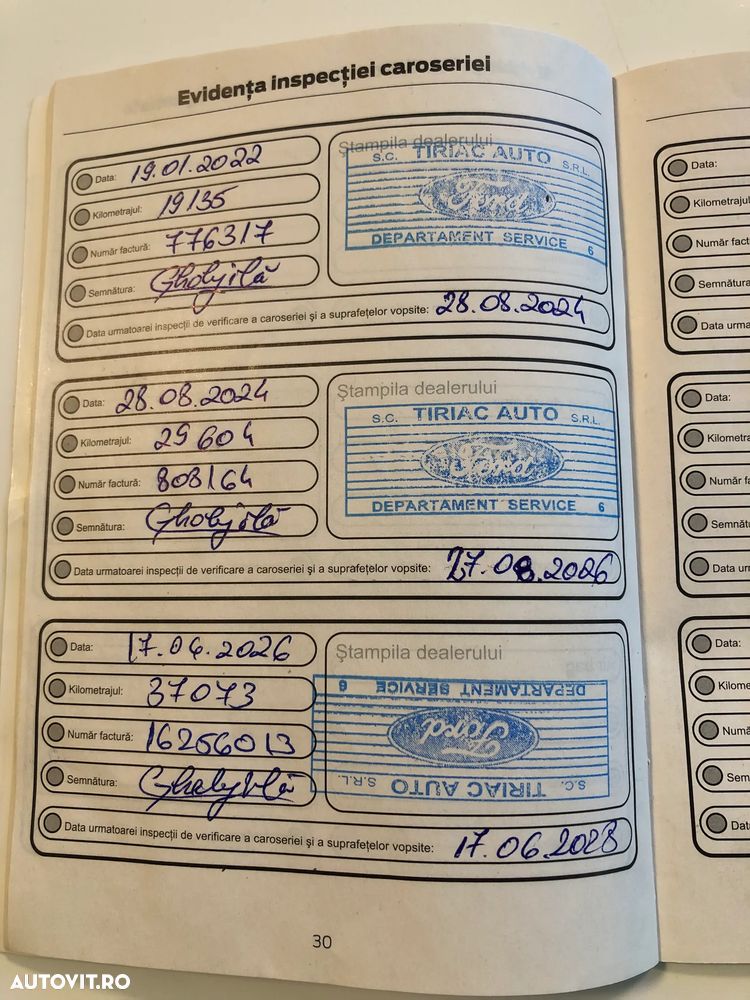 Evidența inspecției caroseriei
Data: 19.01.2022
Kilometrajul: 19135
Număr factură: 776317
Semnătura:
Ștampila dealerului
S.C. TIRIAC AUTO S.R.L.
Ford
DEPARTAMENT SERVICE 6
Data urmatoarei inspecții de verificare a caroseriei și a suprafețelor vopsite: 28.08.2024
Data: 28.08.2024
Kilometrajul: 29604
Număr factură: 808164
Semnătura:
Ștampila dealerului
S.C. TIRIAC AUTO S.R.L.
Ford
DEPARTAMENT SERVICE 6
Data urmatoarei inspecții de verificare a caroseriei și a suprafețelor vopsite: 27.08.2026
Data: 17.06.2026
Kilometrajul: 37073
Număr factură: 16256013
Semnătura:
Ștampila dealerului
DEPARTAMENT SERVICE 6
Ford
S.C. TIRIAC AUTO S.R.L.
Data urmatoarei inspecții de verificare a caroseriei și a suprafețelor vopsite: 17.06.2028
30
Data:
Kilometrajul
Număr fact
Semnătura
Data urma
Data:
Kilometra
Număr fa
Semnăt
Data ur
Data:
Kilome
Numă
Sem
Dat
AUTOVIT.RO